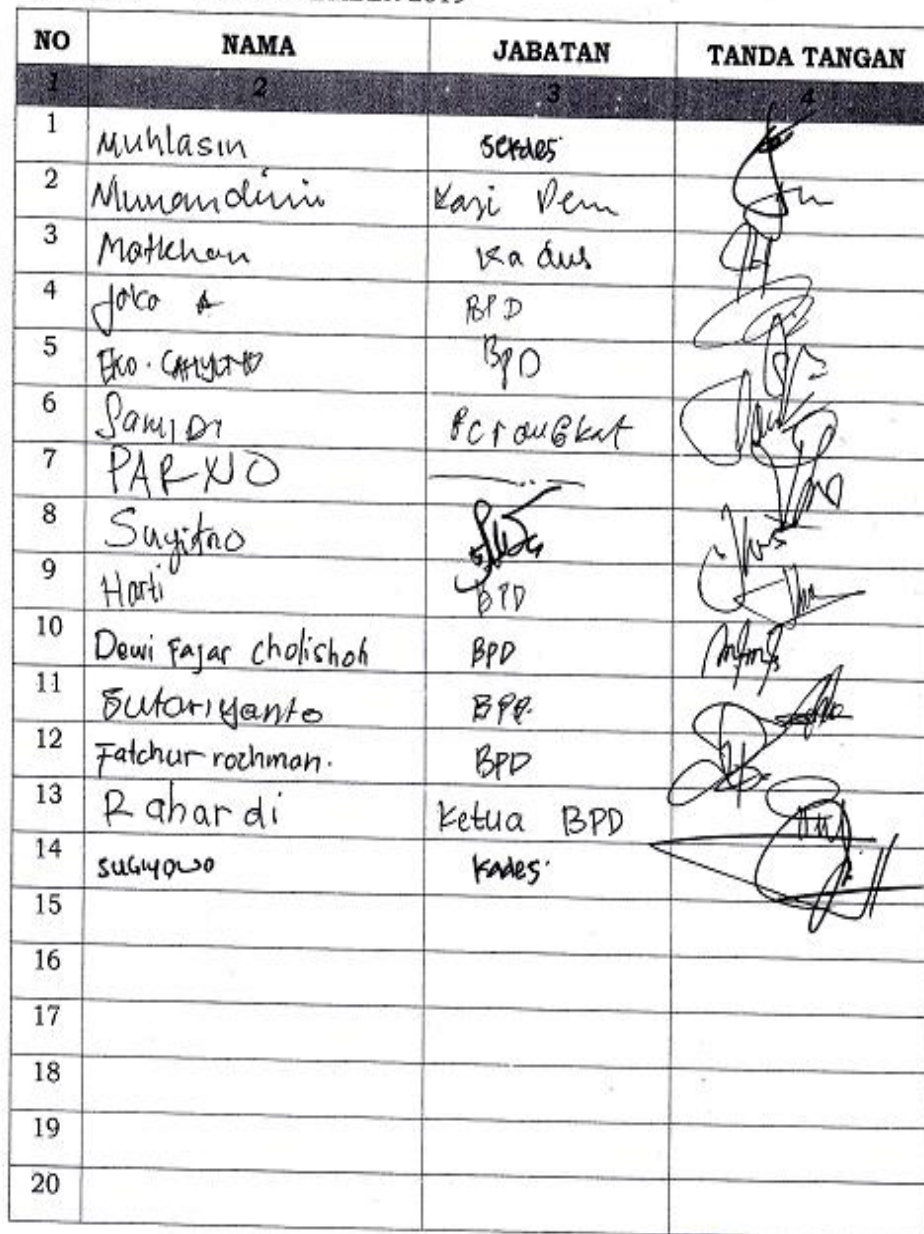 NO NAMA JABATAN TANDA TANGAN
1 2 3 4
1 Muhlasin sekdes
2 Kasi Pem
3 Matkhan Kadus
4 Joko A BPD
5 Eko. CAHYONO BPD
6 SamiDi PerangKat
7 PARNO
8 Sugitno
9 Harti BPD
10 Dewi Fajar Cholishoh BPD
11 Sutariyanto BPD.
12 Fatchur rochman. BPD
13 Rahardi Ketua BPD
14 SUGIYOWO Kades
15
16
17
18
19
20